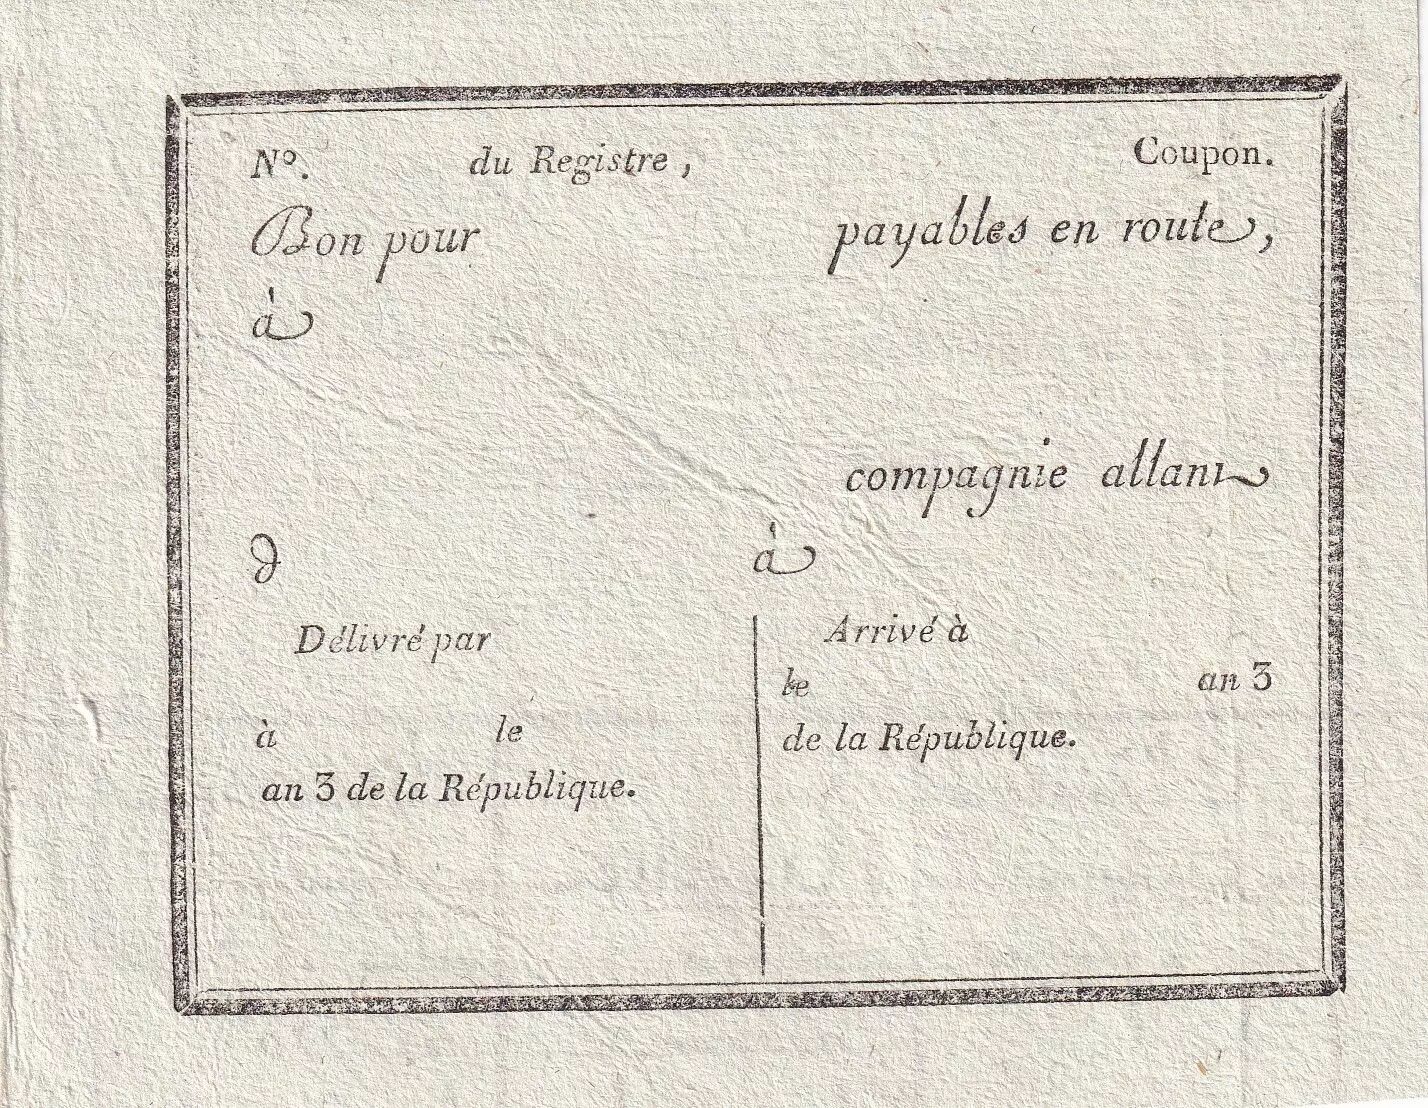 N.° du Registre, Coupon.
Bon pour payables en route,
à
compagnie allant
d à
Délivré par
à le
an 3 de la République.
Arrivé à
le an 3
de la République.